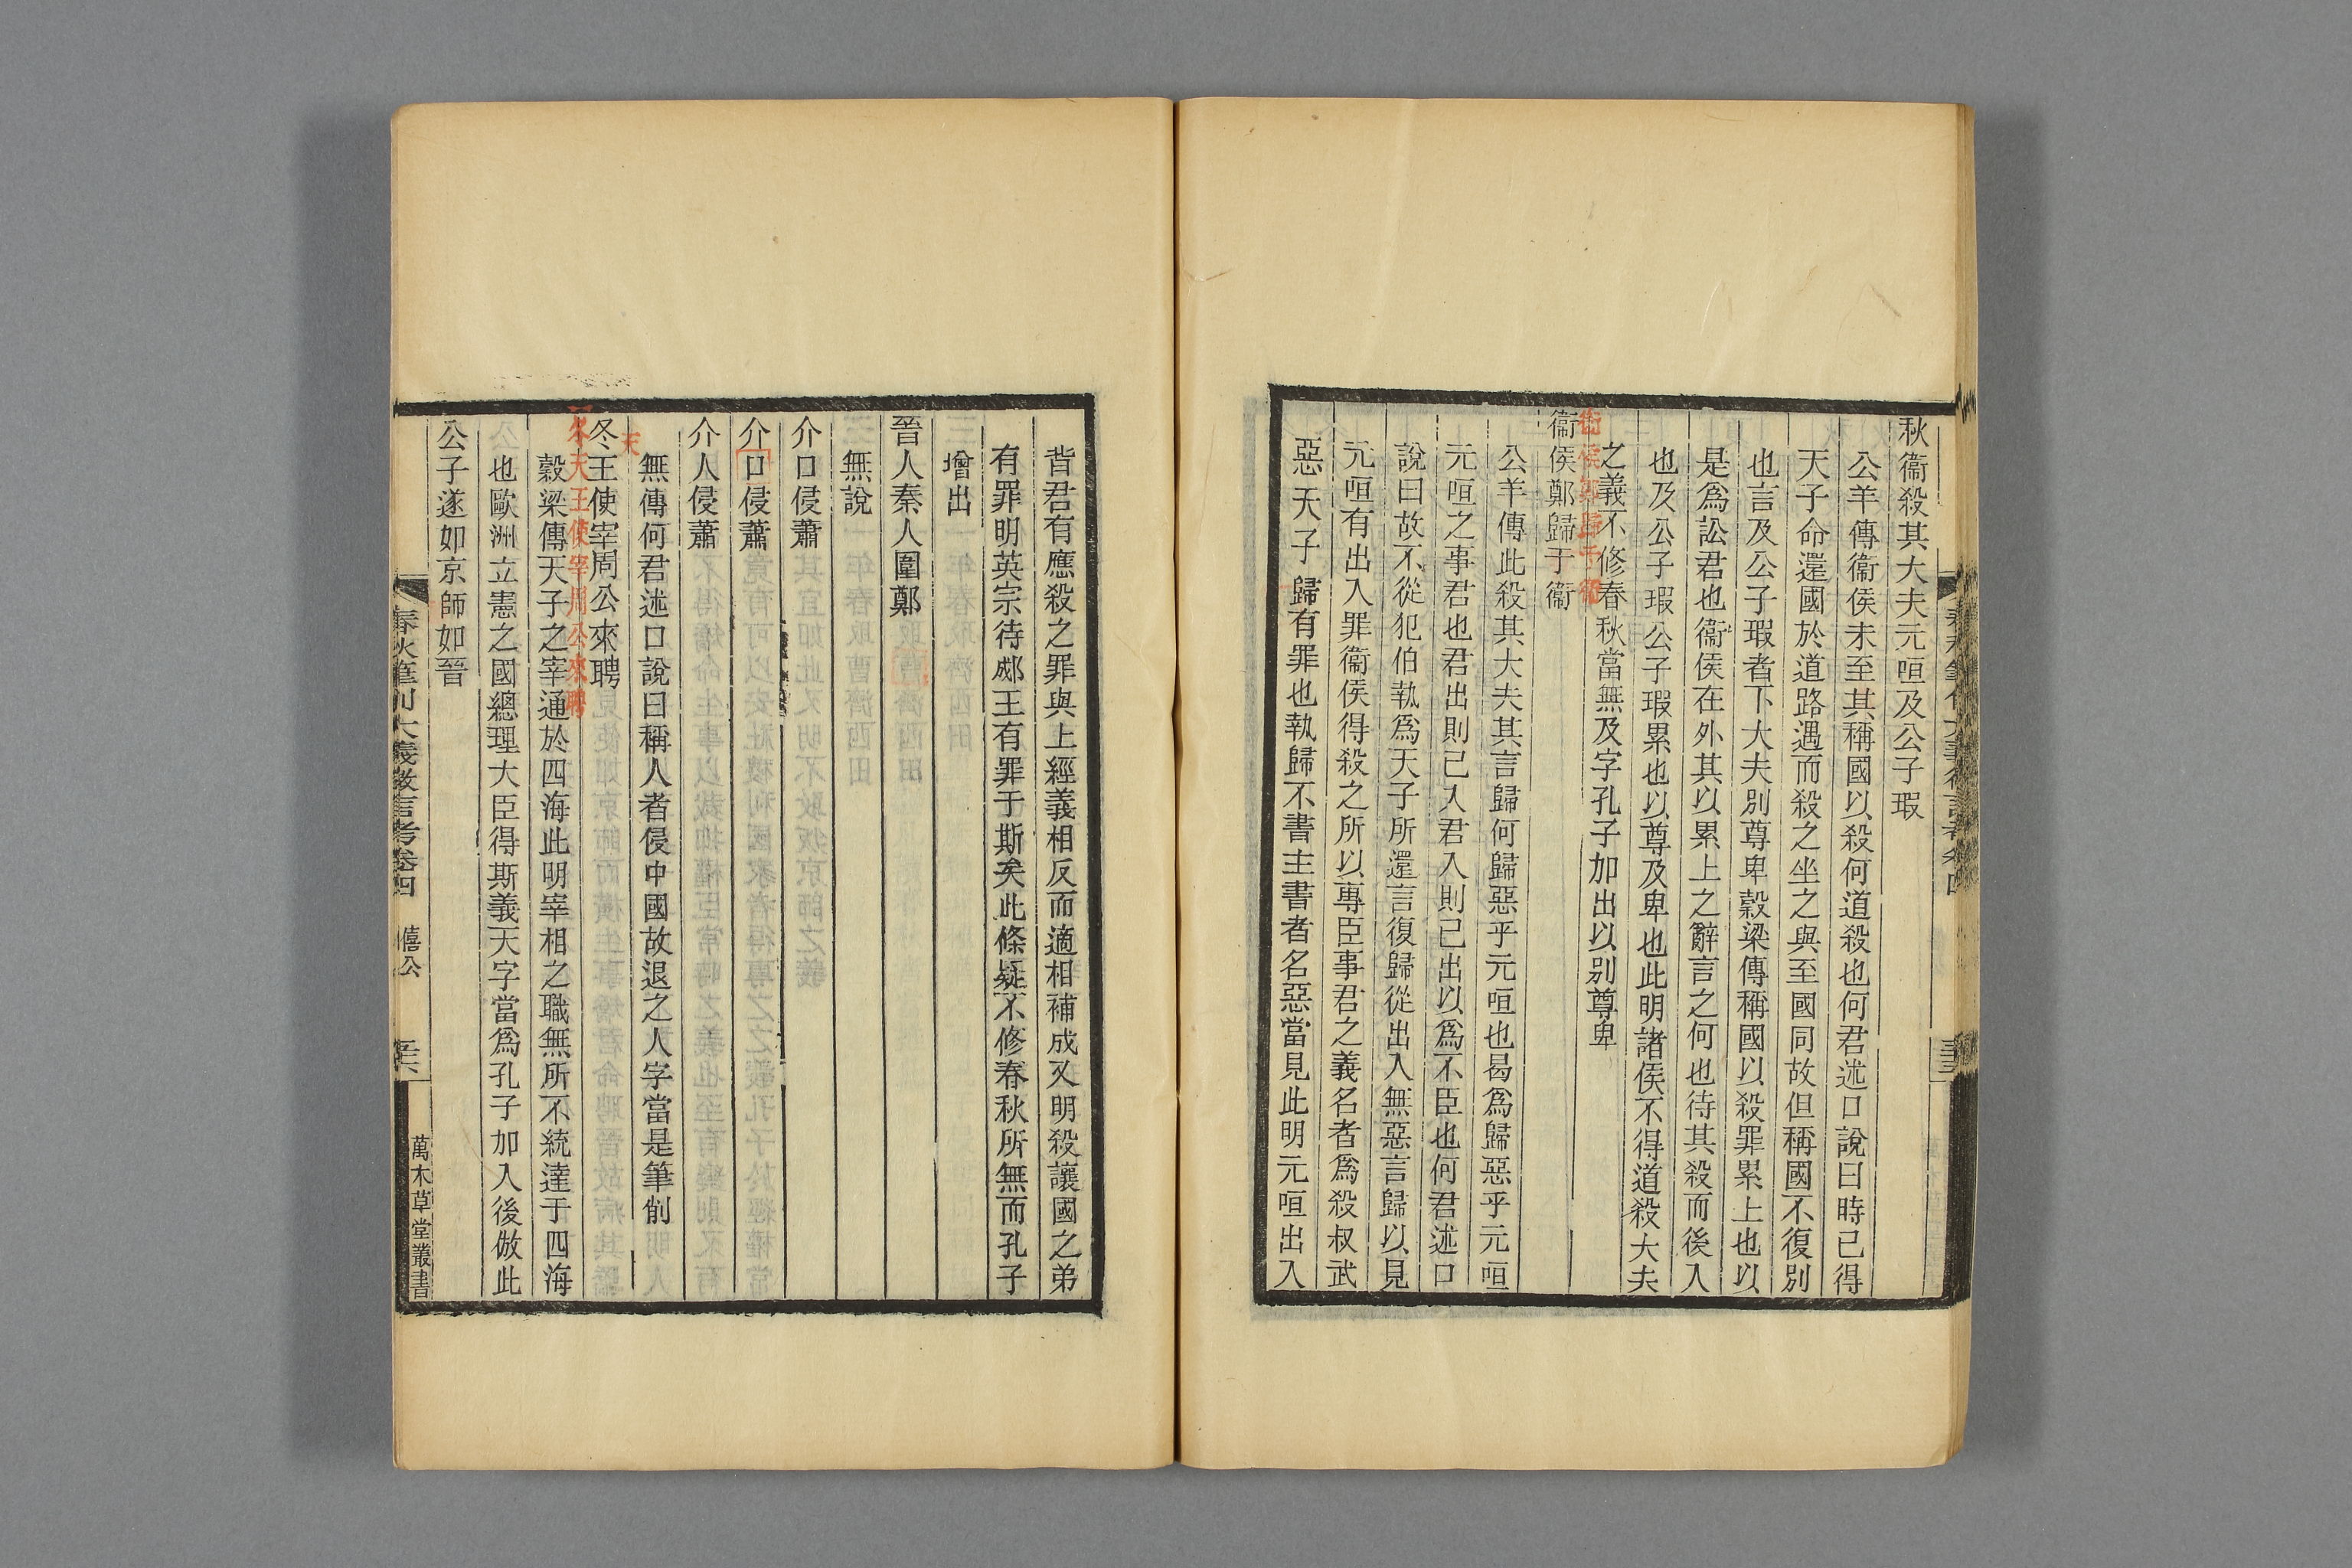 秋衞殺其大夫元咺及公子瑕
公羊傳衞侯未至其稱國以殺何道殺也何君述口說曰時已得
天子命還國於道路遇而殺之坐之與至國同故但稱國不復別
也言及公子瑕者下大夫別尊卑穀梁傳稱國以殺罪累上也以
是爲訟君也衞侯在外其以累上之辭言之何也待其殺而後入
也及公子瑕公子瑕累也以尊及卑也此明諸侯不得道殺大夫
之義不修春秋當無及字孔子加出以别尊卑
衞侯鄭歸于衞
公羊傳此殺其大夫其言歸何歸惡乎元咺也曷爲歸惡乎元咺
元咺之事君也君出則己入君入則己出以爲不臣也何君述口
說曰故不從犯伯執爲天子所還言復歸從出入無惡言歸以見
元咺有出入罪衞侯得殺之所以專臣事君之義名者爲殺叔武
惡天子歸有罪也執歸不書主書者名惡當見此明元咺出入
背君有應殺之罪與上經義相反而適相補成又明殺讓國之弟
有罪明英宗待郕王有罪于斯矣此條疑不修春秋所無而孔子
增出
晉人秦人圍鄭
無說
介口侵蕭
介口侵蕭
介人侵蕭
無傳何君述口說曰稱人者侵中國故退之人字當是筆削
天
冬王使宰周公來聘
冬天王使宰周公來聘
穀梁傳天子之宰通於四海此明宰相之職無所不統達于四海
也歐洲立憲之國總理大臣得斯義天字當爲孔子加入後倣此
公子遂如京師如晉
春秋筆削大義微言考卷四 僖公
萬木草堂叢書